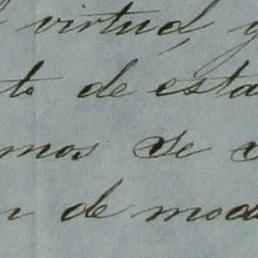 virtud, y
to de esta
mos se
de mod